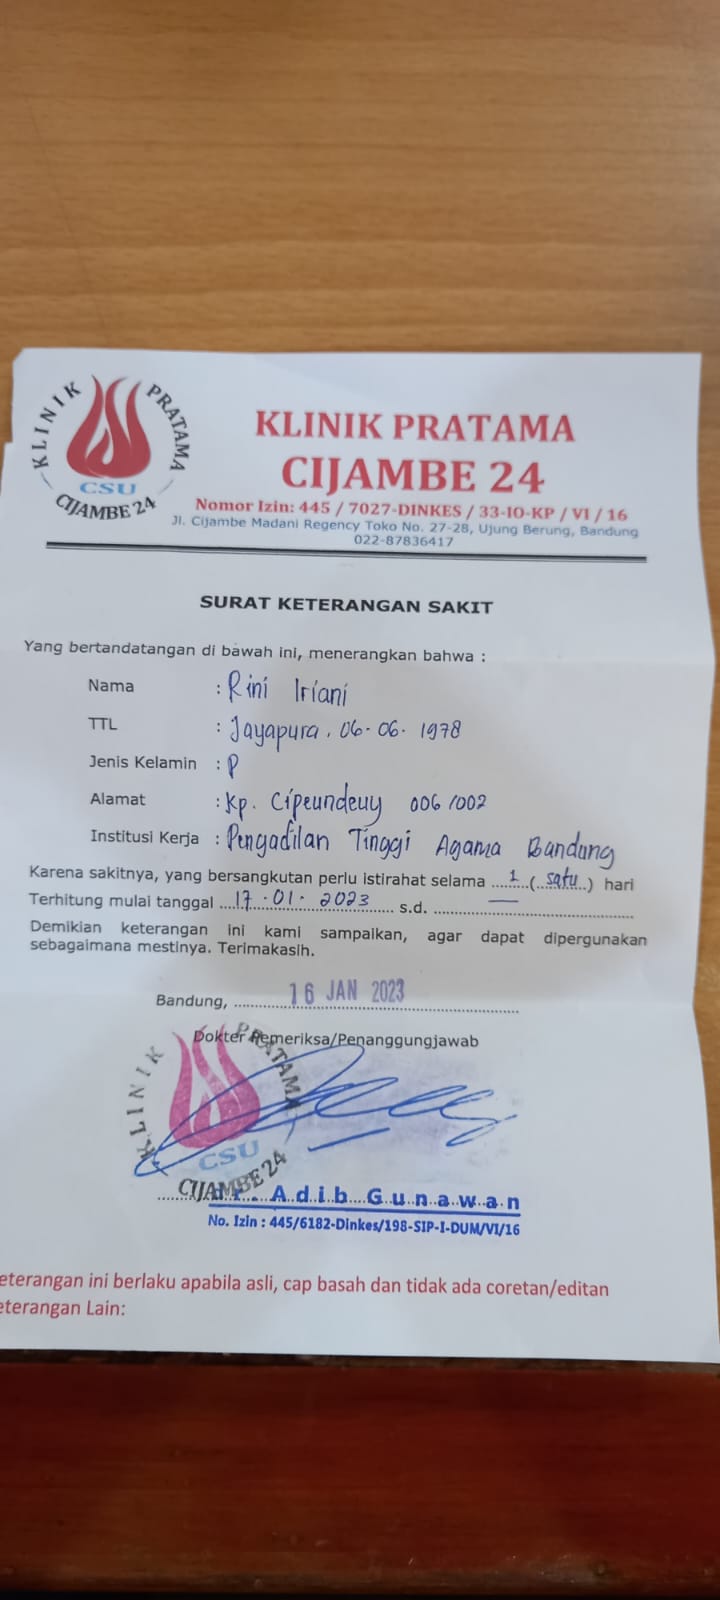 KLINIK PRATAMA
CSU
CIJAMBE 24
KLINIK PRATAMA
CIJAMBE 24
Nomor Izin: 445 / 7027-DINKES / 33-IO-KP / VI / 16
Jl. Cijambe Madani Regency Toko No. 27-28, Ujung Berung, Bandung
022-87836417
SURAT KETERANGAN SAKIT
Yang bertandatangan di bawah ini, menerangkan bahwa :
Nama : Rini Iriani
TTL : Jayapura, 06-06-1978
Jenis Kelamin : P
Alamat : Kp. Cipeundeuy 006/002
Institusi Kerja : Pengadilan Tinggi Agama Bandung
Karena sakitnya, yang bersangkutan perlu istirahat selama ...1...(..satu..) hari
Terhitung mulai tanggal ....17.01.2023.... s.d. ....—....
Demikian keterangan ini kami sampaikan, agar dapat dipergunakan
sebagaimana mestinya. Terimakasih.
Bandung, 16 JAN 2023
Dokter Pemeriksa/Penanggungjawab
KLINIK PRATAMA
CSU
CIJAMBE 24
Adib Gunawan
No. Izin : 445/6182-Dinkes/198-SIP-I-DUM/VI/16
eterangan ini berlaku apabila asli, cap basah dan tidak ada coretan/editan
eterangan Lain: